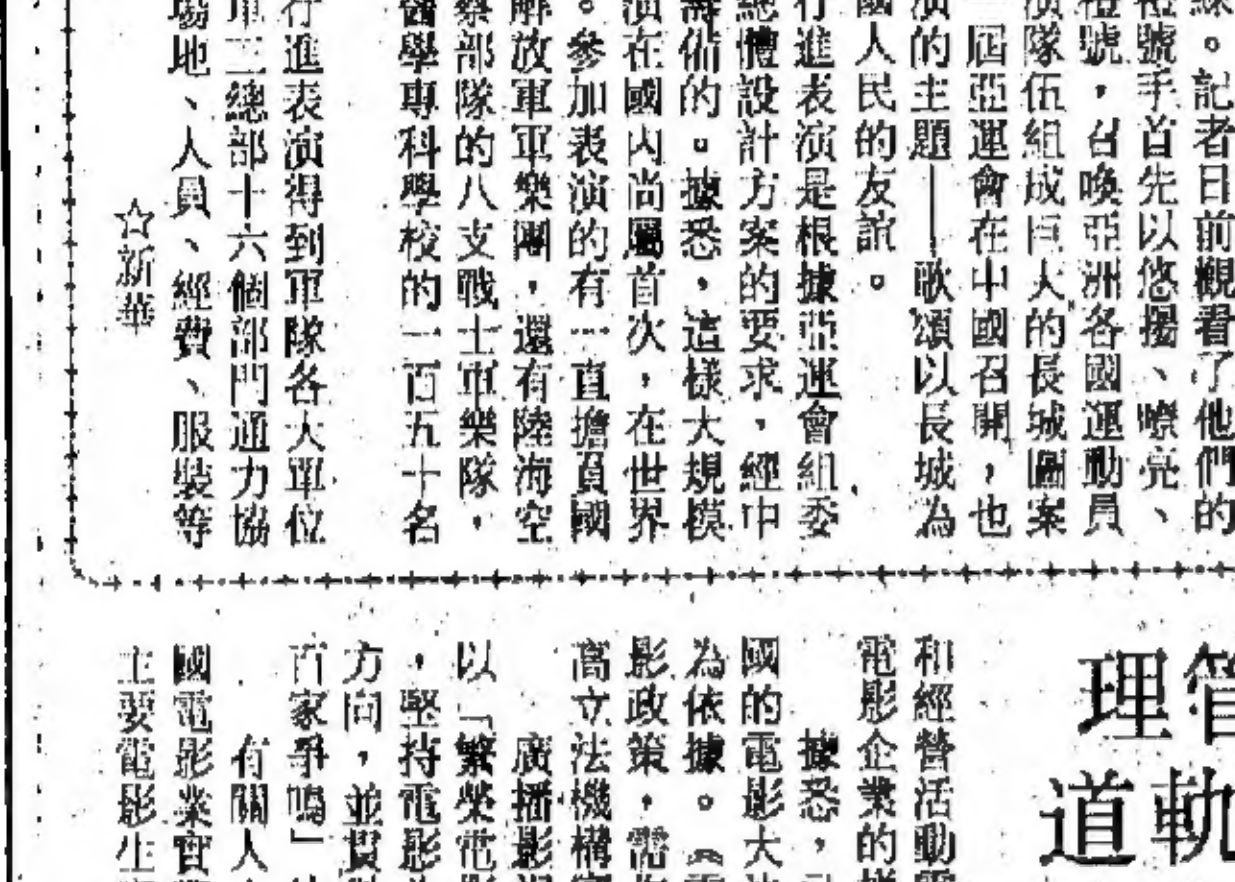 線。記者日前觀看了他們的
禮號手首先以悠揚、嘹亮、
禮號，召喚亞洲各國運動員
演隊伍組成巨大的長城圖案
一屆亞運會在中國召開，也
演的主題——歌頌以長城為
國人民的友誼。
行進表演是根據亞運會組委
總體設計方案的要求，經中
籌備的。據悉，這樣大規模
演在國內尚屬首次，在世界
。參加表演的有一直擔負國
解放軍軍樂團，還有陸海空
察部隊的八支戰士軍樂隊，
醫學專科學校的一百五十名
行進表演得到軍隊各大單位
軍三總部十六個部門通力協
場地、人員、經費、服裝等
☆新華
管軌
理道
和經營活動
電影企業的
據悉，
國的電影大
為依據。
影政策，需
高立法機構
廣播影
以「繁榮電
，堅持電影
方向，並貫
百家爭鳴」
有關人
國電影業實
主要電影生